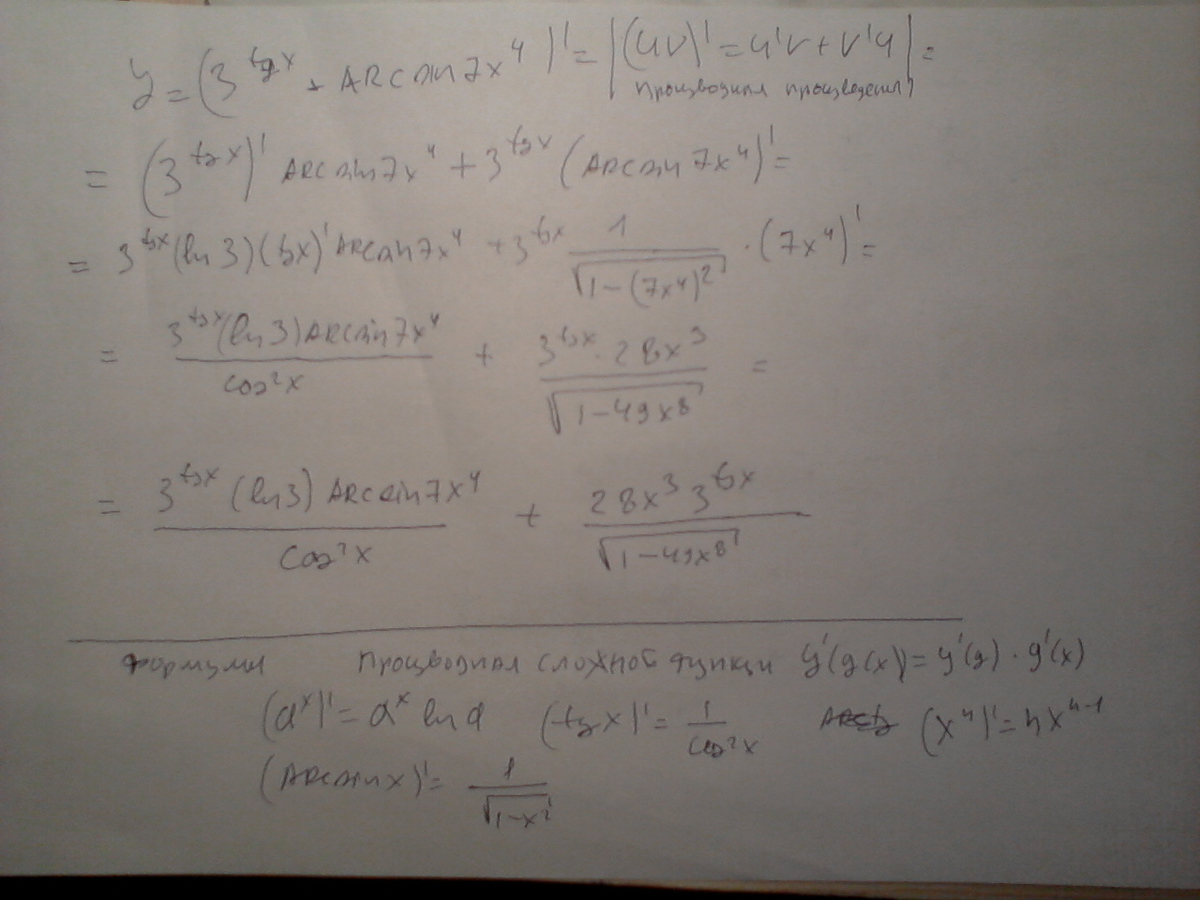 y = (3^{tgx} * ARCsin7x^4)' = |(uv)' = u'v + v'u| =
производная произведения
= (3^{tgx})' ARCsin7x^4 + 3^{tgx} (ARCsin7x^4)' =
= 3^{tgx}(ln3)(tgx)' ARCsin7x^4 + 3^{tgx} \frac{1}{\sqrt{1-(7x^4)^2}} · (7x^4)' =
= \frac{3^{tgx}(ln3)ARCsin7x^4}{cos^2x} + \frac{3^{tgx} · 28x^3}{\sqrt{1-49x^8}} =
= \frac{3^{tgx}(ln3)ARCsin7x^4}{cos^2x} + \frac{28x^3 3^{tgx}}{\sqrt{1-49x^8}}
Формулы Производная сложной функци y'(g(x)) = y'(g) · g'(x)
(a^x)' = a^x ln a (tgx)' = \frac{1}{cos^2x} (x^n)' = nx^{n-1}
(ARCsinx)' = \frac{1}{\sqrt{1-x^2}}